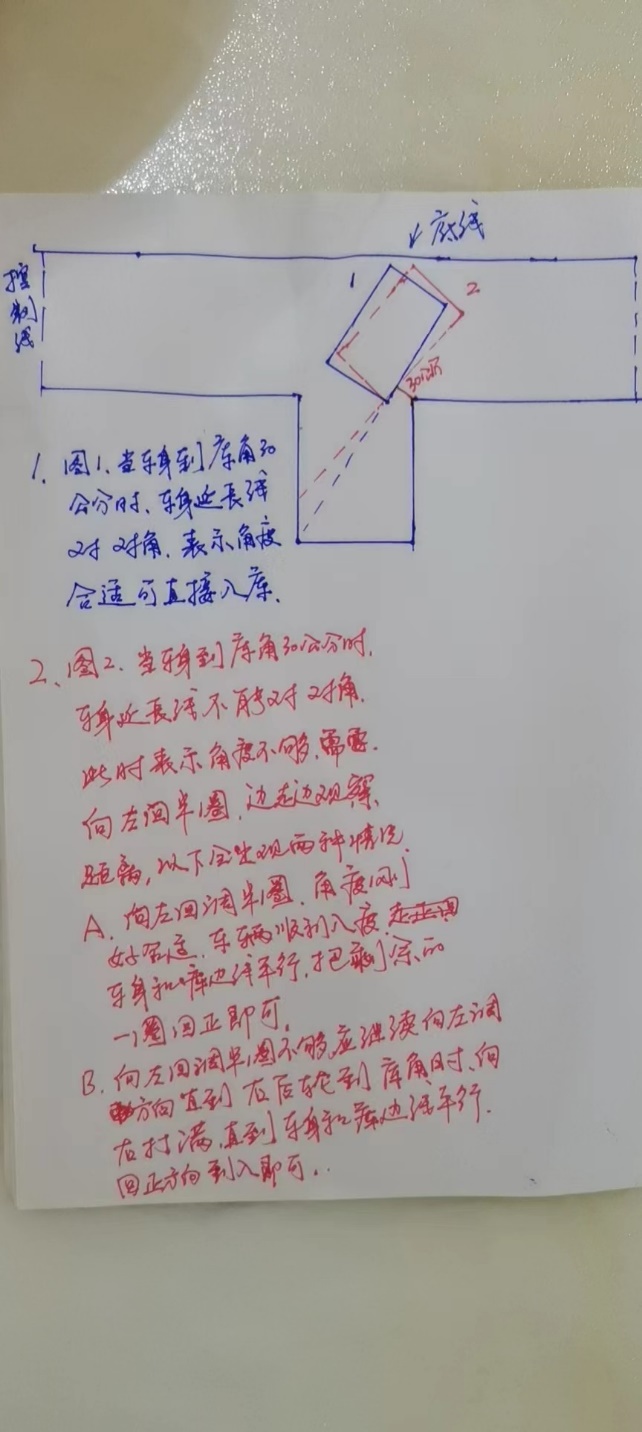 底线
控制线
1
2
30公分
1、图1、当车身到库角30
公分时、车身延长线
对对角、表示角度
合适可直接入库、
2、图2、当车身到库角30公分时、
车身延長线不能对对角、
此时表示角度不够、需要、
向左回半圈、边走边观察、
距离，以下会出现两种情况、
A、向左回调半圈、角度刚
好合适、车辆顺利入库、
车身和库边线平行、把剩余的
一圈回正即可。
B、向左回调半圈不够、应继续向左调
方向直到右后轮到库角时、向
右打满、直到车身和库边线平行、
回正方向到入即可、